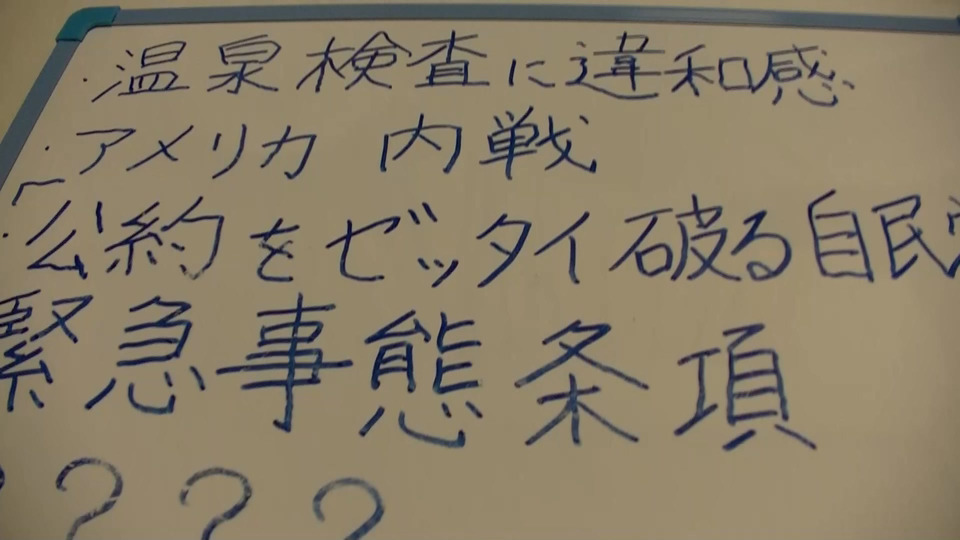 ・温泉検査に違和感
・アメリカ 内戦
・「公約をゼッタイ破る自民
緊急事態条項
????